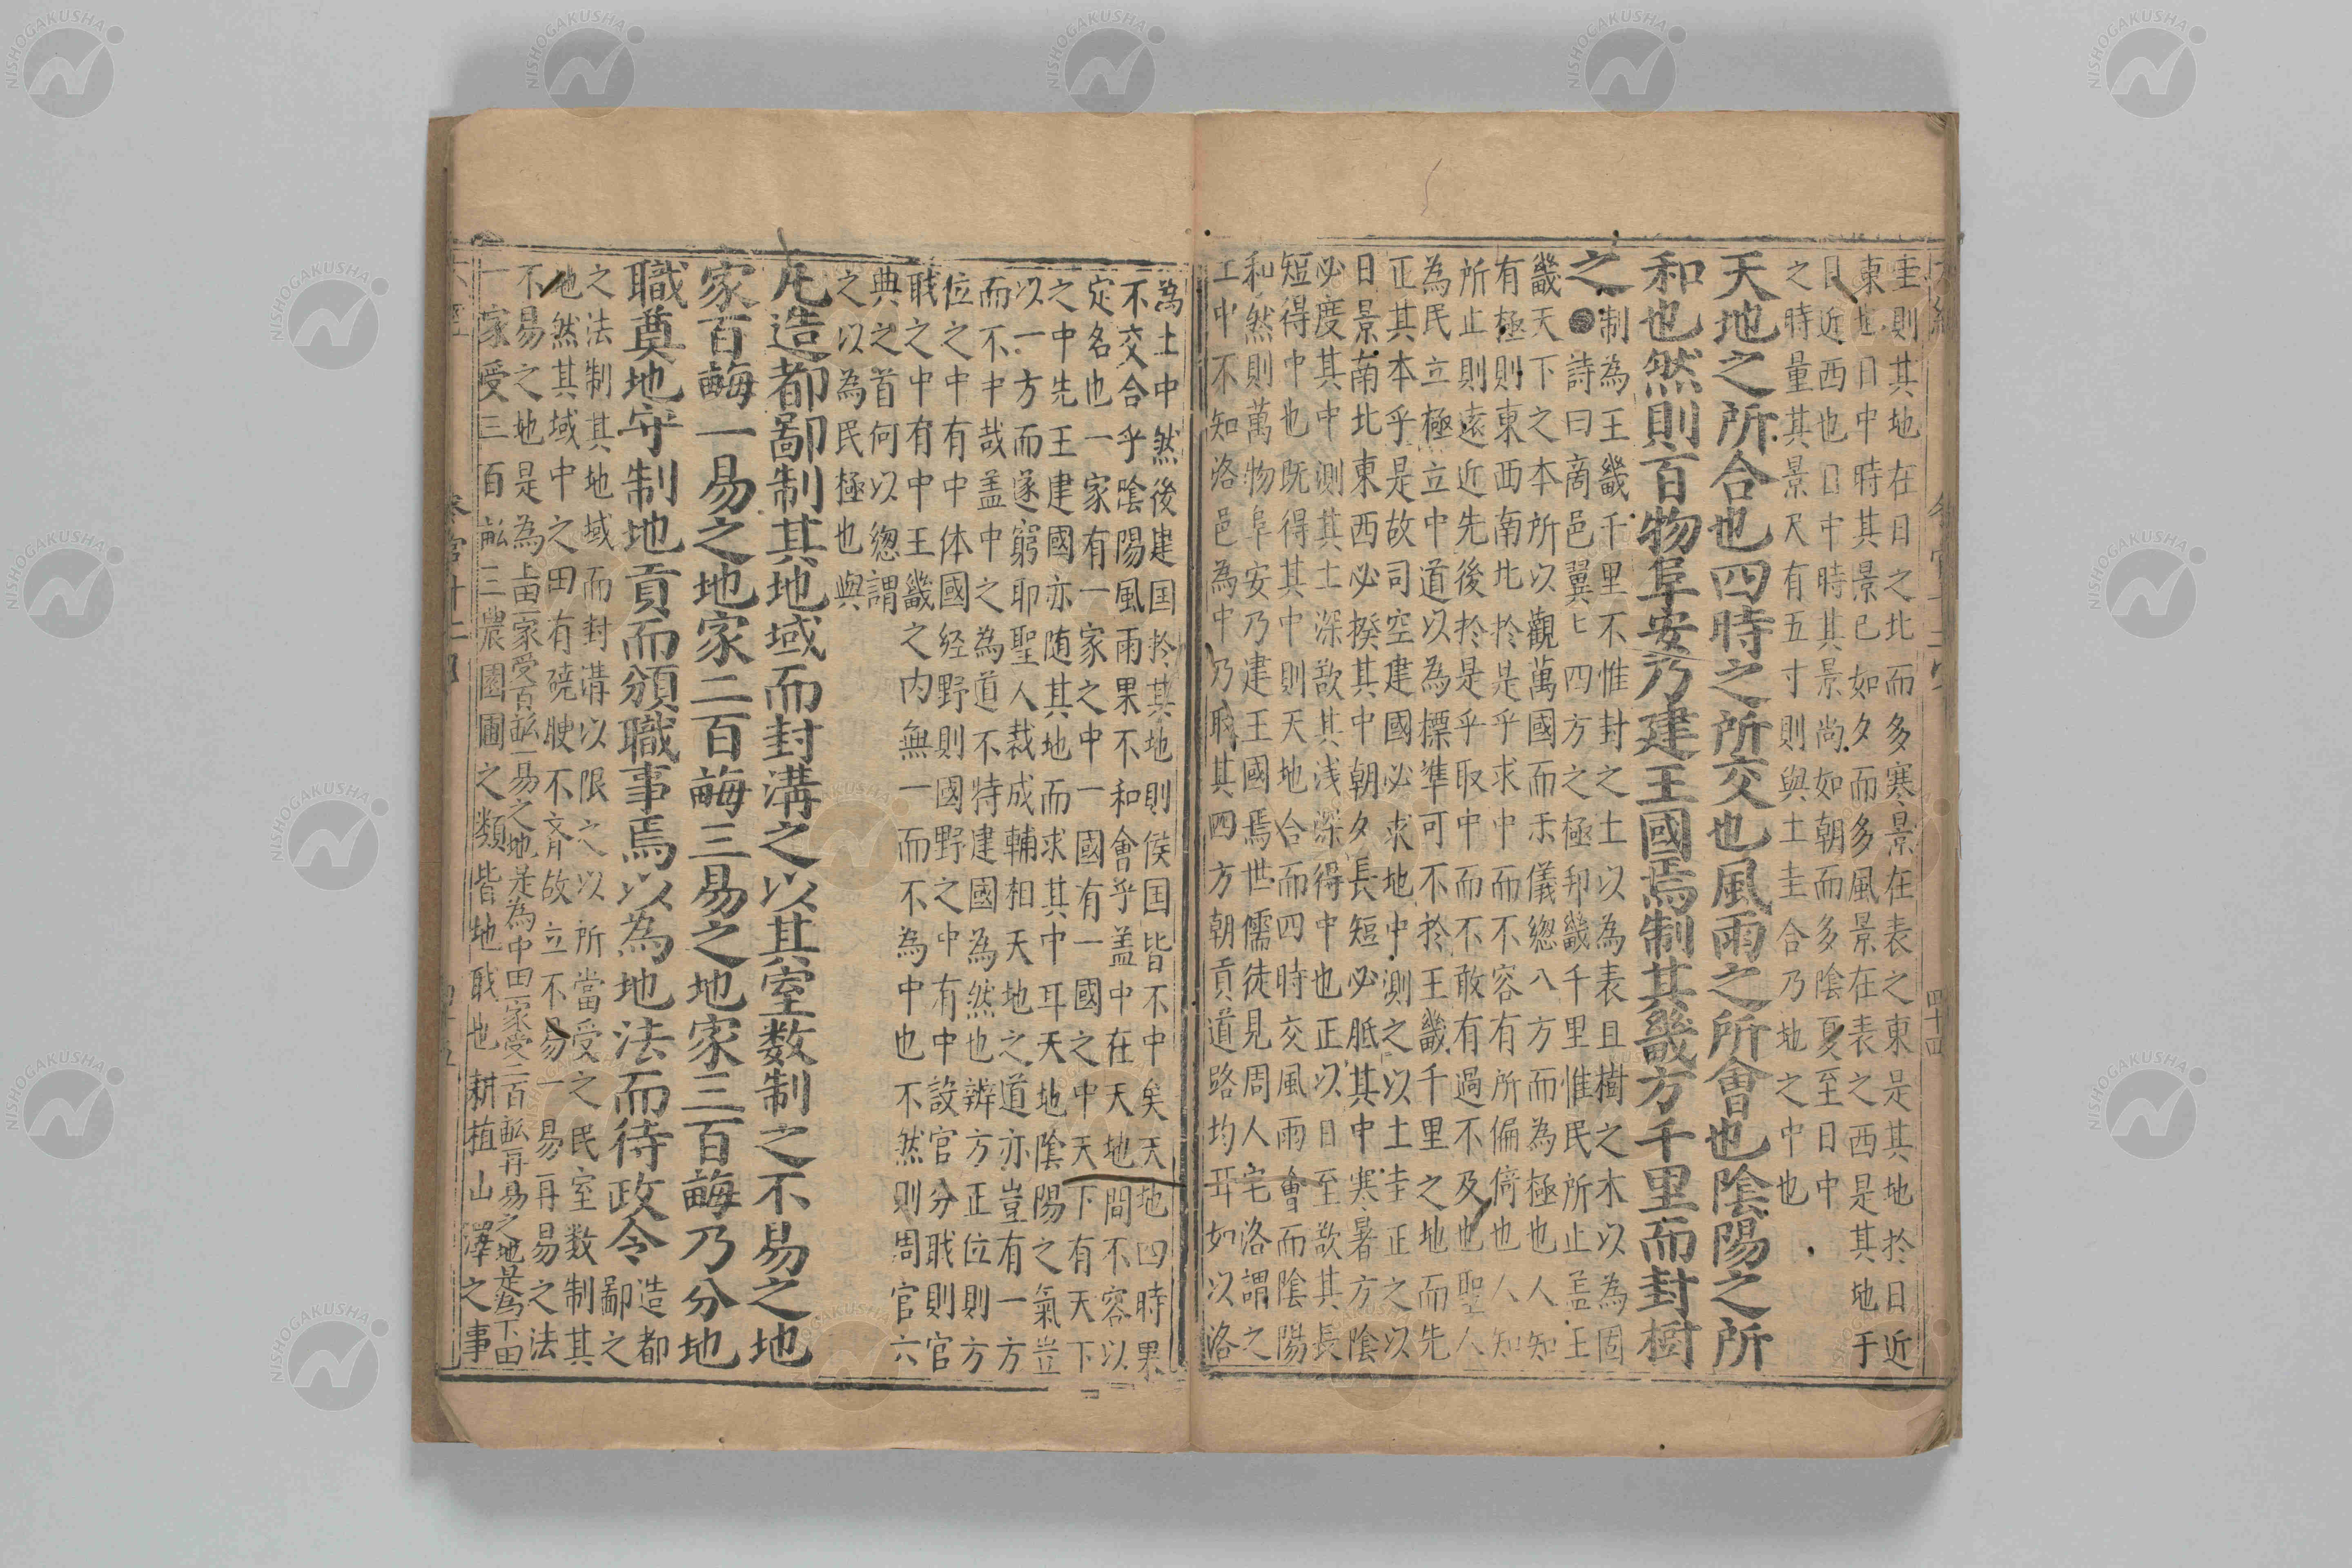 圭則其地在日之北而多寒景在表之東是其地於日近
東也日中時其景已如夕而多風景在表之西是其地于
日近西也日中時其景尚如朝而多陰夏至日中
之時量其景尺有五寸則與土圭合乃地之中也
天地之所合也四時之所交也風雨之所會也陰陽之所
和也然則百物阜安乃建王國焉制其畿方千里而封樹
之
制為王畿千里不惟封之土以為表且樹之木以為固
詩曰商邑翼〻四方之極卬畿千里惟民所止盖王
畿天下之本所以觀萬國而示儀緫八方而為極也人知
有極則東西南北扵是乎求中而不容有所偏倚也人知
所止則遠近先後扵是乎取中而不敢有過不及也聖人
為民立極立中道以為標準可不扵王畿千里之地而先
正其本乎是故司空建國必求地中測之以土圭正之以
日景南北東西必揆其中朝夕長短必胝其中寒暑方陰
必度其中測其土深欲其浅深得中也正以日至欲其長
短得中也既得其中則天地合而四時交風雨會而陰陽
和然則萬物阜安乃建王國焉世儒徒見周人宅洛謂之
工中不知洛邑為中乃聀其四方朝貢道路均耳如以洛
為土中然後建国扵其地則侯国皆不中矣天地四時果
不交合乎陰陽風雨果不和會乎盖中在天地間不容以
定名也一家有一家之中一國有一國之中天下有天下
之中先王建國亦随其地而求其中耳天地陰陽之氣豈
以一方而遂窮耶聖人裁成輔相天地之道亦豈有一方
而不中哉盖中之為道不特建國為然也辨方正位則方
位之中有中体國经野則國野之中有中設官分聀則官
聀之中有中王畿之内無一而不為中也不然則周官六
典之首何以緫謂
之以為民極也與
凡造都鄙制其地域而封溝之以其室数制之不易之地
家百畮一易之地家二百畮三易之地家三百畮乃分地
職奠地守制地貢而頒職事焉以為地法而待政令
造都
鄙之
之法制其地域而封溝以限之以所當受之民室数制其
地然其域中之田有磽腴不齊故立不易一易再易之法
不易之地是為上田一家受百畝一易之地是為中田一家受二百畝再易之地是為下田
一家受三百畝三農園圃之類皆地聀也耕植山澤之事